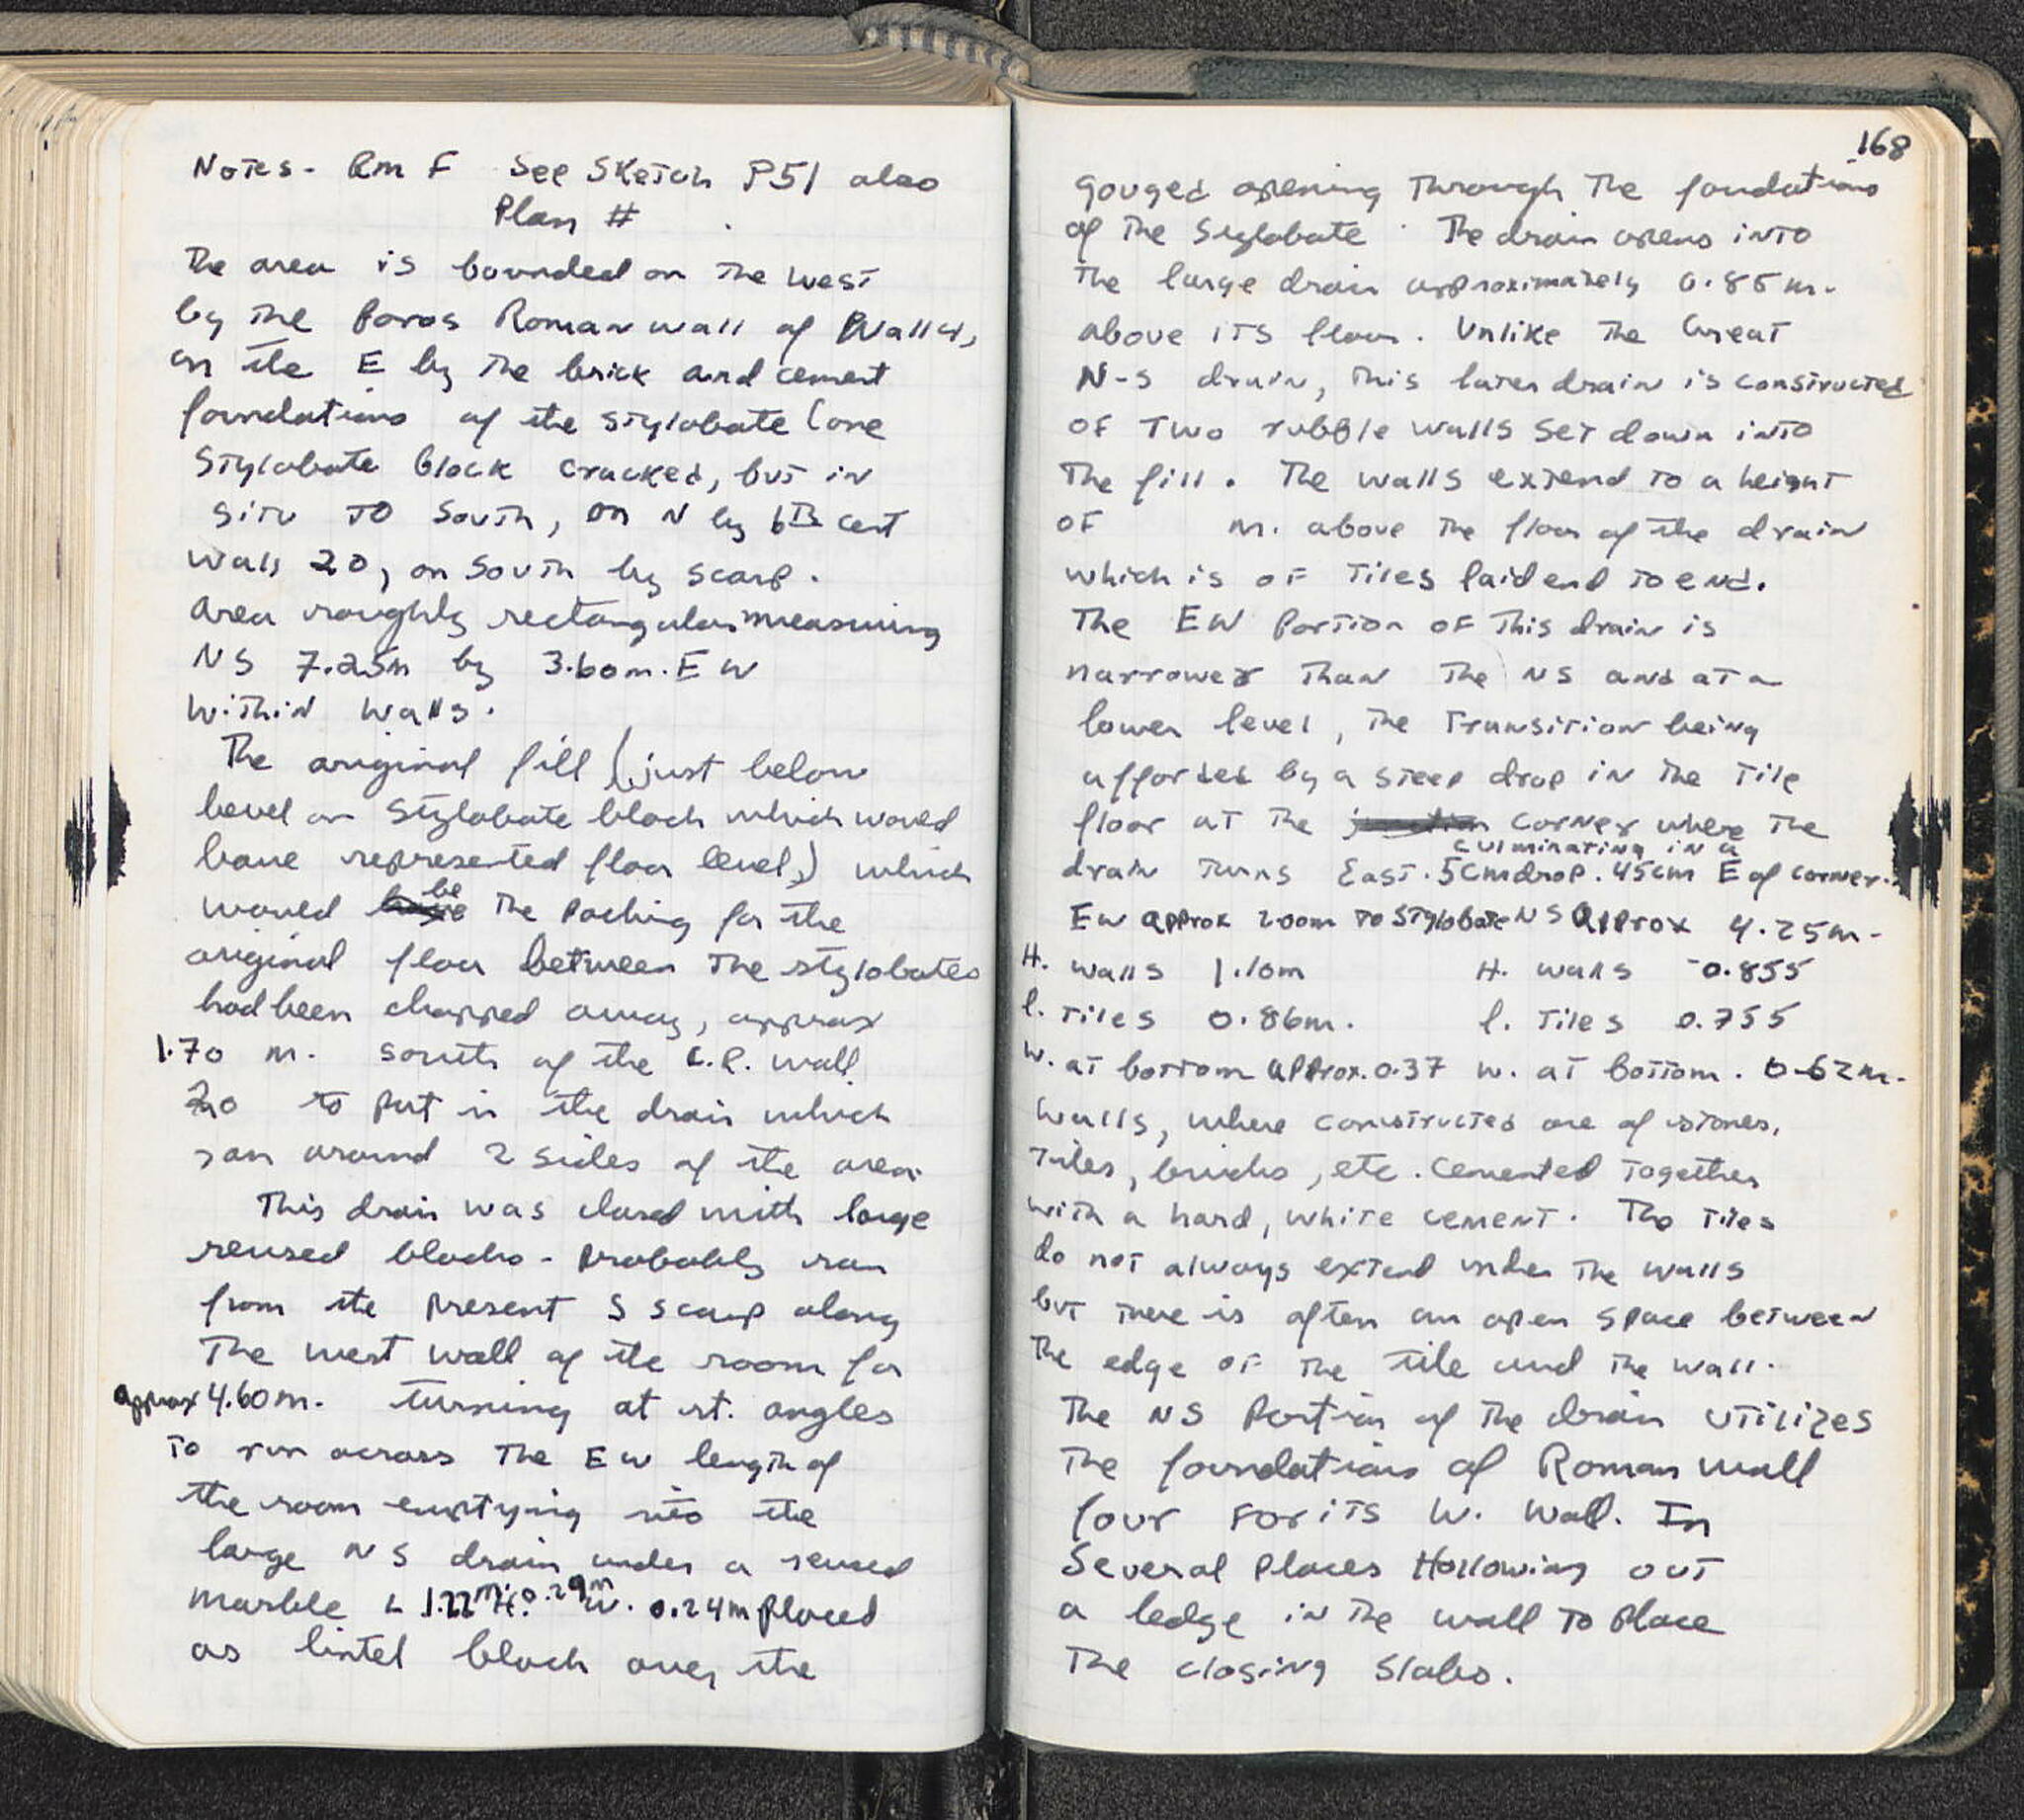 Notes - Rm F See Sketch P51 also
Plan #
The area is bounded on the west
by the Poros Roman wall of Wall 4,
on the E by the brick and cement
foundations of the stylobate (one
stylobate block cracked, but in
situ to south, on N by 6th cent
wall 20, on South by scarp.
Area roughly rectangular measuring
NS 7.25m by 3.60m. EW
within walls.
The original fill (just below
bevel on stylobate block which would
have represented floor level,) which
would be the packing for the
original floor between the stylobates
had been chopped away, approx
1.70 m. south of the L.R. wall
20 to put in the drain which
ran around 2 sides of the area.
This drain was closed with large
reused blocks - probably ran
from the present S scarp along
The west wall of the room for
approx 4.60m. turning at rt. angles
to run across the EW length of
the room emptying into the
large NS drain under a reused
marble L 1.22m H. 0.29m W. 0.24m placed
as lintel block over the
168
gouged opening through the foundations
of the Stylobate. The drain opens into
the large drain approximately 0.85m.
above its floor. Unlike the Great
N-S drain, this later drain is constructed
of two rubble walls set down into
The fill. The walls extend to a height
of m. above the floor of the drain
which is of tiles laid end to end.
The EW Portion of this drain is
narrower than the NS and at a
lower level, the transition being
afforded by a steep drop in the tile
floor at the corner where the
culminating in a
drain turns East. 5cm drop. 45cm E of corner.
EW approx 2.00m to stylobate NS approx 4.25m.
H. walls 1.10m H. walls 0.855
l. tiles 0.86m. l. tiles 0.755
w. at bottom approx. 0.37 w. at bottom. 0.62m.
Walls, where constructed are of stones,
tiles, bricks, etc. cemented together
with a hard, white cement. The tiles
do not always extend under the walls
but there is often an open space between
the edge of the tile and the wall.
The NS Portion of the drain utilizes
the foundations of Roman wall
four for its W. wall. In
Several places Hollowing out
a ledge in the wall to place
the closing slabs.